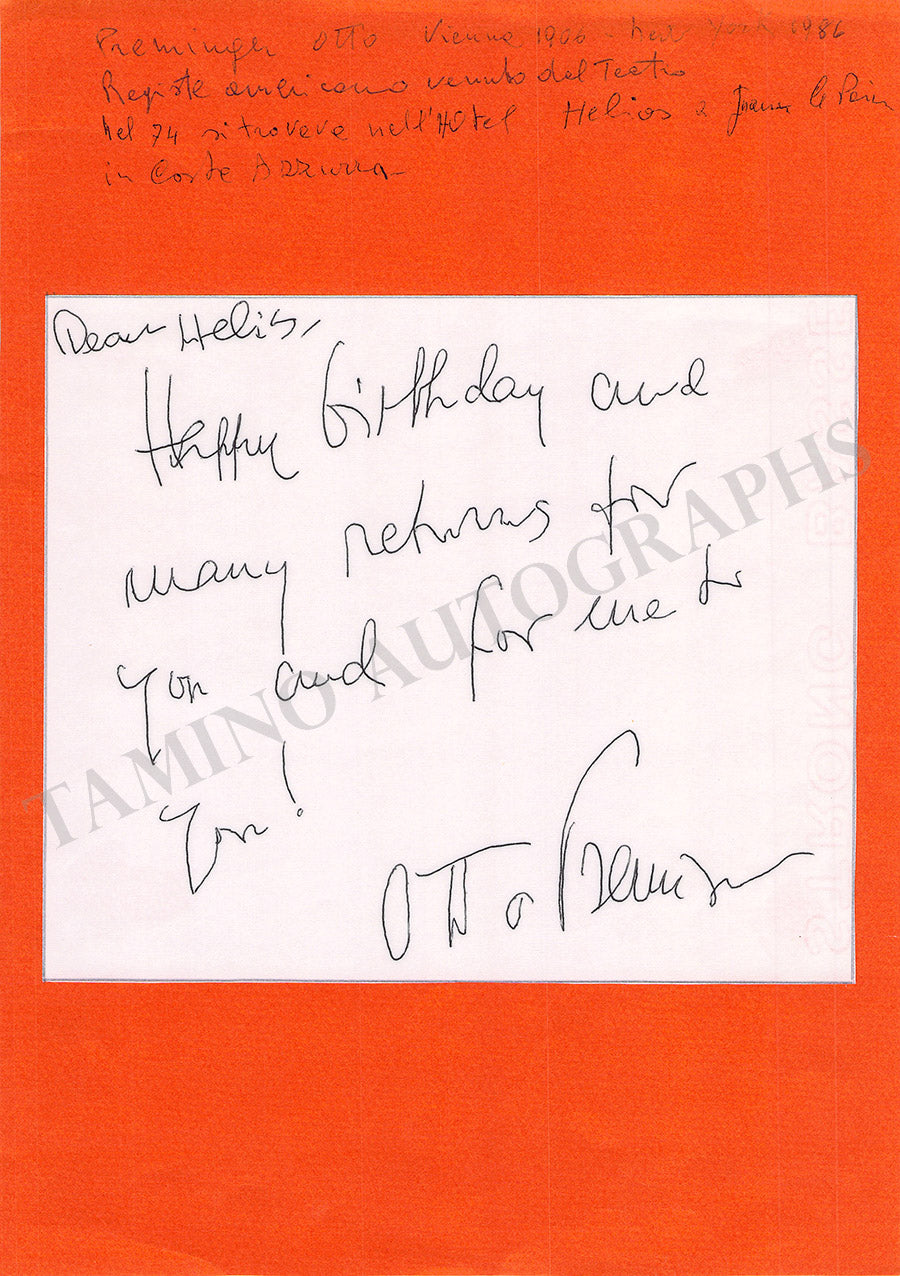 Preminger Otto Vienna 1906 - New York 1986
Regista americano venuto dal Teatro
Nel 74 si trovava nell'Hôtel Helios a Juan le Pin
in Costa Azzurra
Dear Helis,
Happy birthday and
many returns for
you and for me to
you!
Otto Preminger
TAMINO AUTOGRAPHS